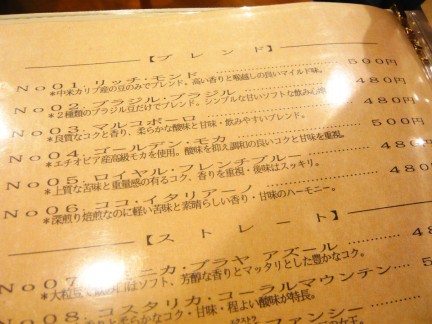 【ブレンド】
No01. リッチ・モンド 500円
*中米カリブ産の豆のみでブレンド。高い香りと喉越しの良いマイルド味。
No02. ブラジル・ブラジル 480円
*2種類のブラジル豆だけでブレンド。シンプルな甘いソフトな飲み心地
No03. マルコポーロ 500円
*良質なコクと香り、柔らかな酸味と甘味・飲みやすいブレンド。
No04. ゴールデン・モカ 480円
*エチオピア産高級モカを使用。酸味を抑え調和の良いコクと甘味を重視。
No05. ロイヤル・フレンチブルー 480円
*上質な苦味と重量感の有るコク、香りを重視・後味はスッキリ。
No06. ココ・イタリアーノ 480円
*深煎り焙煎なのに軽い苦味と素晴らしい香り・甘味のハーモニー。
【ストレート】
No07. ニカ・プラヤ アズール 48
*大粒豆 はソフト、芳醇な香りとマッタリとした豊かなコク。
No08. コスタリカ・コーラルマウンテン 5
と柔らかなコク・甘味・程よい酸味が特長。
ファンシー 4
の女王。